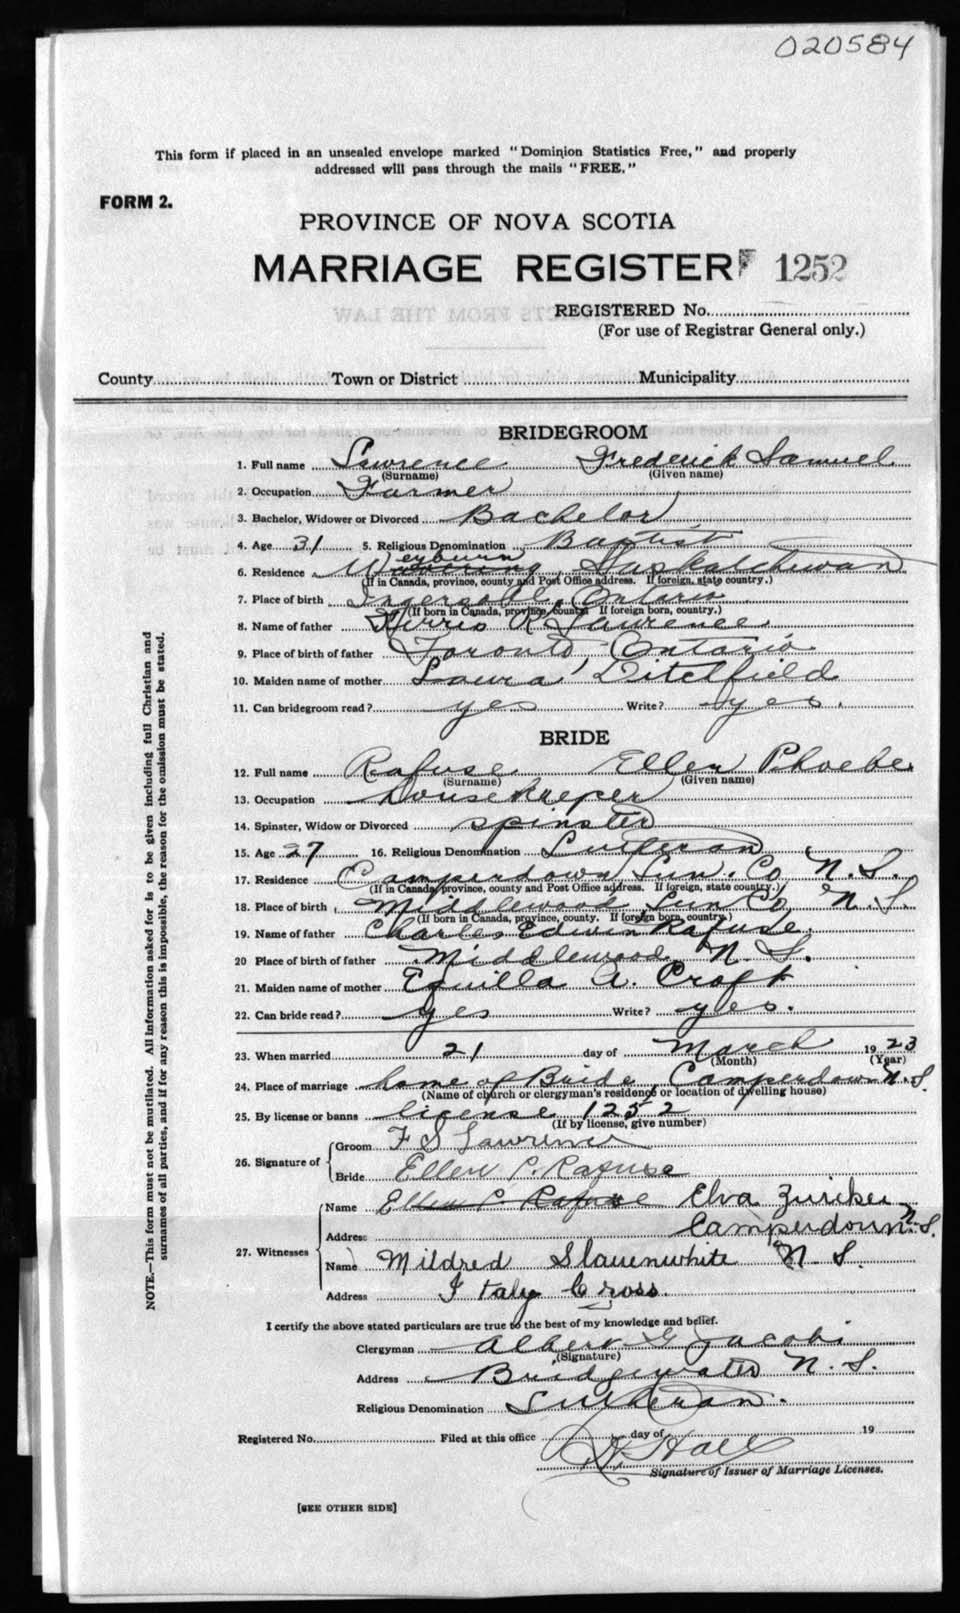 020584
This form if placed in an unsealed envelope marked "Dominion Statistics Free," and properly
addressed will pass through the mails "FREE."
FORM 2.
PROVINCE OF NOVA SCOTIA
MARRIAGE REGISTER 1252
REGISTERED No.
(For use of Registrar General only.)
County Town or District Municipality
BRIDEGROOM
1. Full name Lawrence Frederick Samuel
(Surname) (Given name)
2. Occupation Farmer
3. Bachelor, Widower or Divorced Bachelor
4. Age 31 5. Religious Denomination Baptist
6. Residence Weyburn, Saskatchewan
(If in Canada, province, county and Post Office address. If foreign, state country.)
7. Place of birth Ingersoll, Ontario
(If born in Canada, province, county If foreign born, country.)
8. Name of father R. Lawrence
9. Place of birth of father Toronto, Ontario
10. Maiden name of mother Laura Ditchfield
11. Can bridegroom read? yes Write? yes.
BRIDE
12. Full name Rafuse Ellen Phoebe
(Surname) (Given name)
13. Occupation Housekeeper
14. Spinster, Widow or Divorced spinster
15. Age 27 16. Religious Denomination Lutheran
17. Residence Camperdown Lun. Co N.S.
(If in Canada, province, county and Post Office address. If foreign, state country.)
18. Place of birth Middlewood Lun Co N.S.
(If born in Canada, province, county. If foreign born, country.)
19. Name of father Charles Edwin Rafuse.
20 Place of birth of father Middlewood N.S.
21. Maiden name of mother A. Croft
22. Can bride read? yes Write? yes.
23. When married 21 day of March 1923
(Month) (Year)
24. Place of marriage home of Bride, Camperdown N.S.
(Name of church or clergyman's residence or location of dwelling house)
25. By license or banns license 1252
(If by license, give number)
26. Signature of Groom F S Lawrence
Bride Ellen P. Rafuse
27. Witnesses Name Ellen P. Rafuse Elva Zwicker
Address Camperdown N.S.
Name Mildred Slauenwhite N.S.
Address Italy Cross.
I certify the above stated particulars are true to the best of my knowledge and belief.
Clergyman Albert G Jacobi
(Signature)
Address Bridgewater N.S.
Religious Denomination Lutheran.
Registered No. Filed at this office day of 19
Hall
Signature of Issuer of Marriage Licenses.
[SEE OTHER SIDE]
NOTE.—This form must not be mutilated. All information asked for is to be given including full Christian and
surnames of all parties, and if for any reason this is impossible, the reason for the omission must be stated.